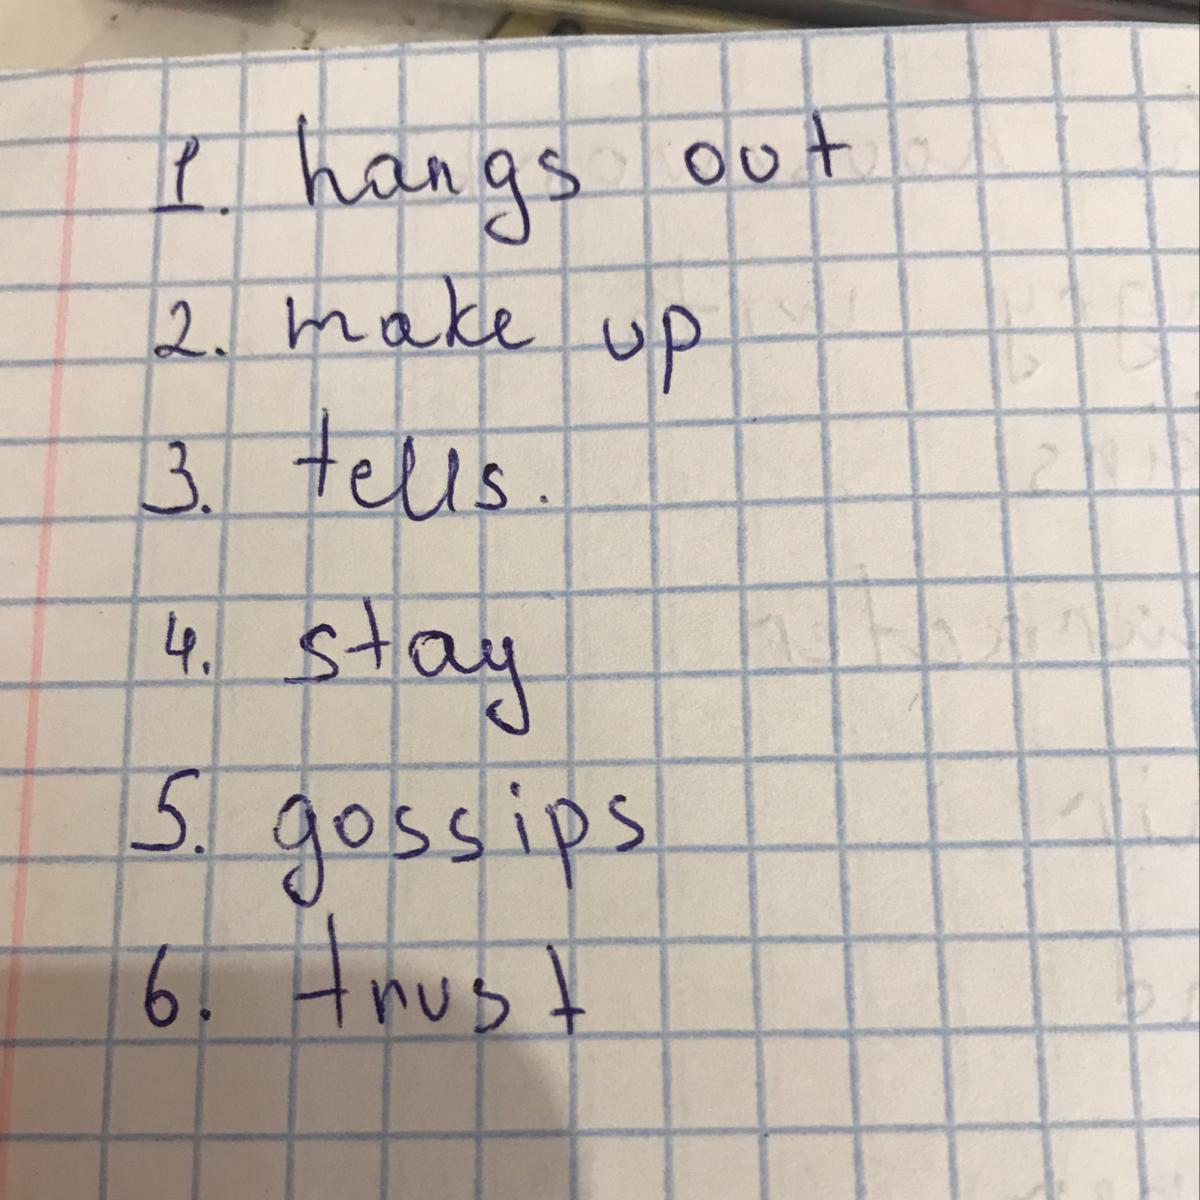 1. hangs out
2. make up
3. tells.
4. stay
5. gossips
6. trust